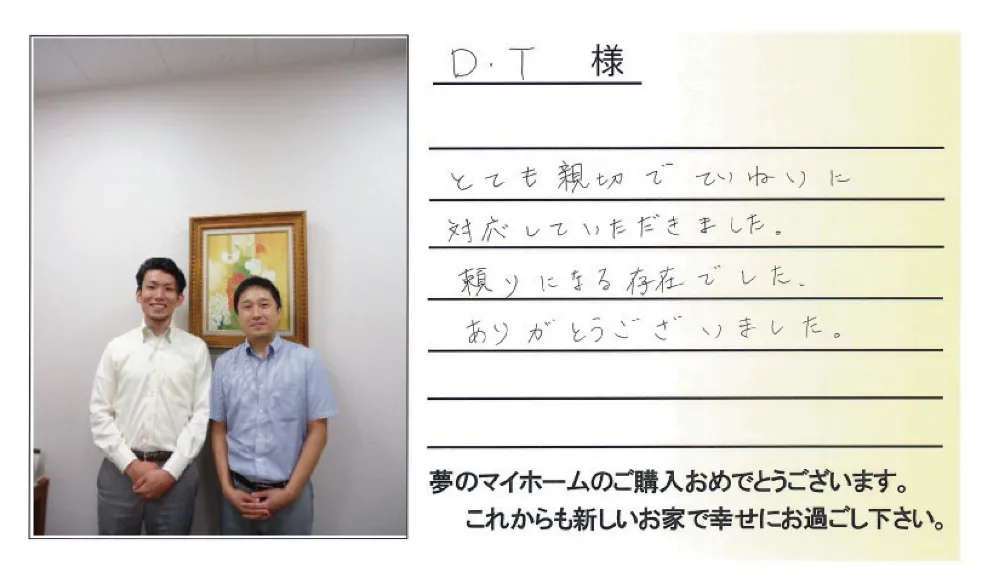 D・T 様
とても親切でていねいに
対応していただきました。
頼りになる存在でした。
ありがとうございました。
夢のマイホームのご購入おめでとうございます。
これからも新しいお家で幸せにお過ごし下さい。